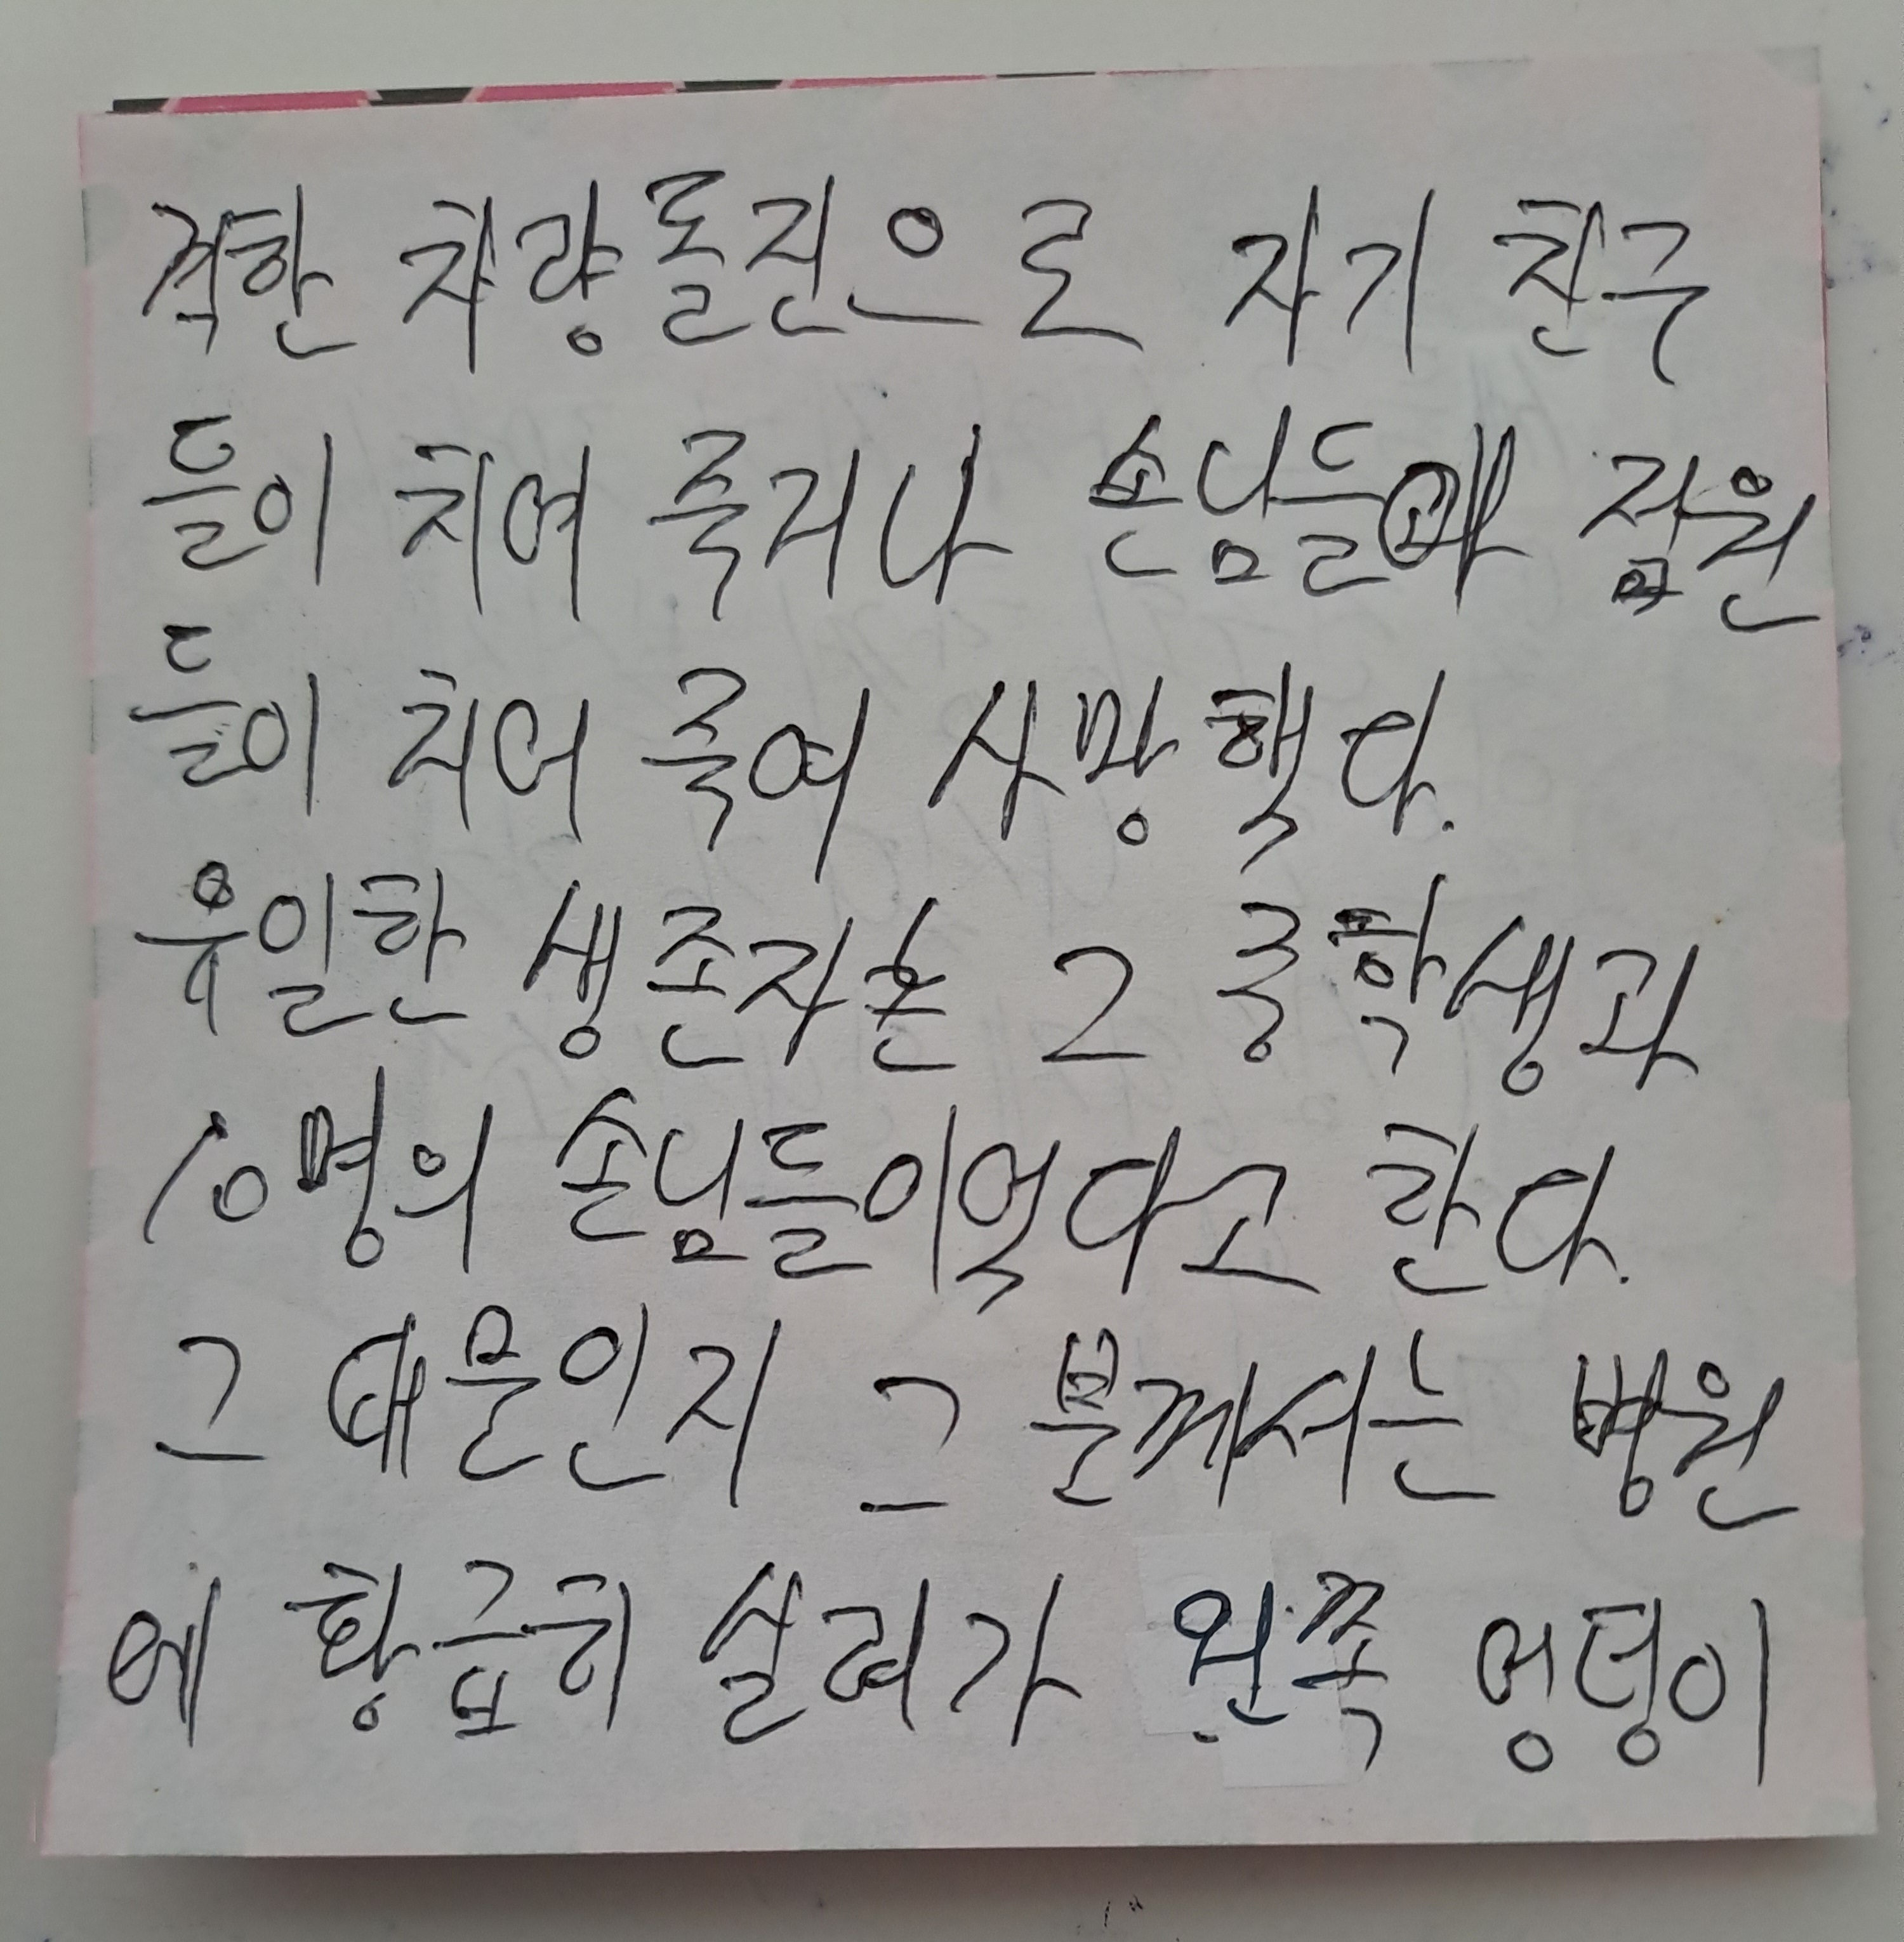 적한 차량돌진으로 자기 친구
들이 치여 죽거나 손님들과 점원
들이 치어 죽여 사망핵다.
유일한 생존자는 그 중학생과
10명의 손님들이억다고 한다.
그 때문인지 그 분께서는 병원
에 황급히 실려가 왼쪽 엉덩이